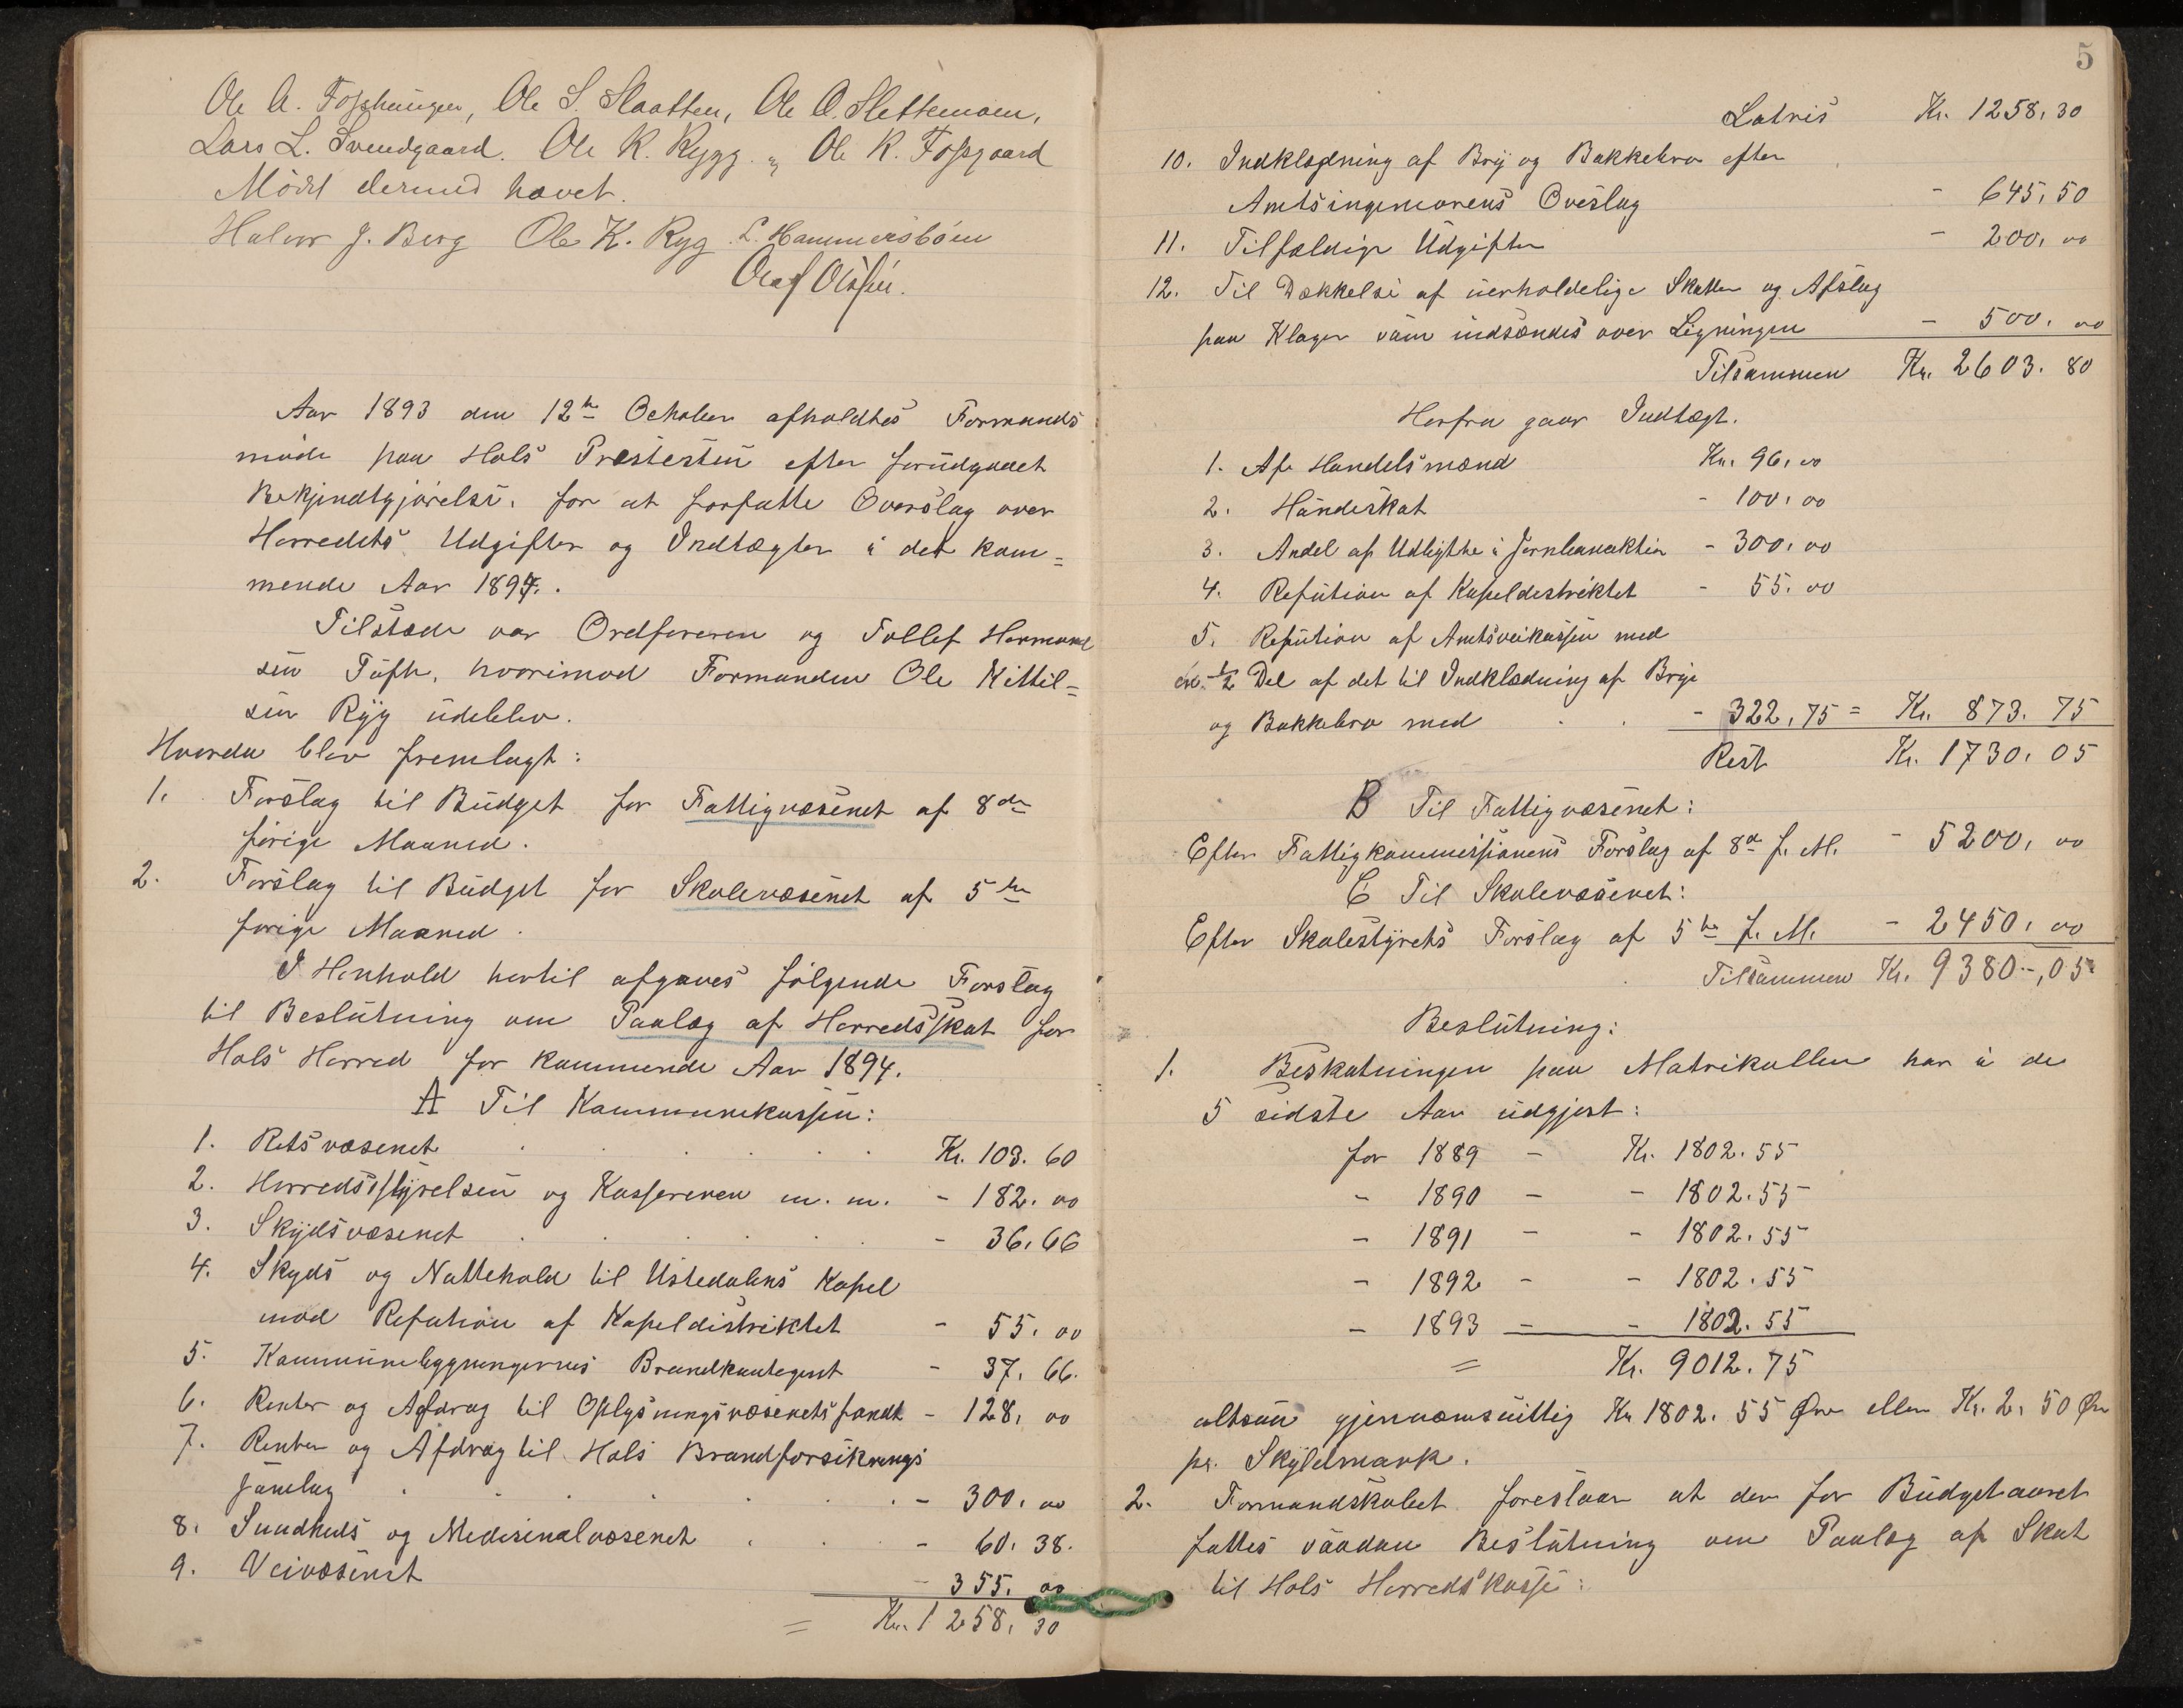 Ole A. Fosshaugen, Ole S. Slaatten, Ole O. Slettemoen,
Lars L. Svendgaard. Ole K. Rygg. " Ole K. Fossgaard
Mödet dermed hævet.
Halvor J. Berg Ole K. Ryg L. Hammersbøen
Olaf Olsen.
Aar 1893 den 12te October afholdtes Formands
møde paa Hols Præstestue efter forudgaaet
Bekjendtgjørelse, for at forfatte Overslag over
Herredets Udgifter og Indtægter i det kom=
mende Aar 1894.
Tilstede var Ordføreren og Tollef Hermand
sen Tufte, hvorimod Formanden Ole Kittil=
sen Ryg udeblev.
Hvorda blev fremlagt:
1. Forslag til Budget for Fattigvæsenet af 8de
forige Maaned.
2. Forslag til Budget for Skolevæsenet af 5te
forige Maaned.
I Henhold hertil afgaves følgende Forslag
til Beslutning om Paalæg af Herredsskat for
Hols Herred for kommende Aar 1894.
A Til Kommunekassen:
1. Retsvæsenet Kr. 103. 60
2. Herredsstyrelsen og Kassereren m. m. - 182. 00
3. Skydsvæsenet - 36, 66
4. Skyds og Nattehold til Ustedalens Kapel
mod Refution af Kapeldistriktet - 55. 00
5. Kommunebygningernes Brandkontegent - 37. 66.
6. Renter og Afdrag til Oplysningsvæsenets fond - 128, 00
7. Renter og Afdrag til Hols Brandforsikrings
samlag - 300. 00
8. Sundheds og Medesinalvæsenet - 60. 38.
9. Veivæsenet - 355. 00
= Kr. 1258, 30
5
Latris Kr. 1258, 30
10. Indklædning af Bry og Bakkebro efter
Amtsingeniørens Overslag - 645, 50
11. Tilfældige Udgifter - 200, 00
12. Til Dækkelse af uerholdelige Skatter og Afslag
paa Klager som indsændes over Ligningen - 500. 00
Tilsammen Kr. 2603. 80
Herfra gaar Indtægt.
1. Af Handelsmænd Kr. 96, 00
2. Hundeskat - 100, 00
3. Andel af Udbytte i Jernbaneaktier - 300, 00
4. Refution af Kapeldestriktet - 55. 00
5. Refution af Amtsveikassen med
1/2 Del af det til Indklædning af Brye
og Bakkebro med - 322, 75 = Kr. 873. 75
Rest Kr. 1730, 05
B Til Fattigvæsenet:
Efter Fattigkommissionens Forslag af 8de f. M. - 5200, 00
C Til Skolevæsenet:
Efter Skolestyrets Forslag af 5te f. M. - 2450, 00
Tilsammen Kr. 9380-, 05
Beslutning:
1. Beskatningen paa Matrikullen har i de
5 sidste Aar udgjort:
for 1889 - Kr. 1802. 55
- 1890 - - 1802. 55
- 1891 - - 1802. 55
- 1892 - - 1802. 55
- 1893 - - 1802. 55
= Kr. 9012. 75
altsaa gjennæmsnittig Kr 1802. 55 Øre eller Kr. 2, 50 Øre
pr. Skyldmark.
2. Formandskabet foreslaar at der for Budgetaaret
fattes saadan Beslutning om Paalæg af Skat
til Hols Herredskasse: